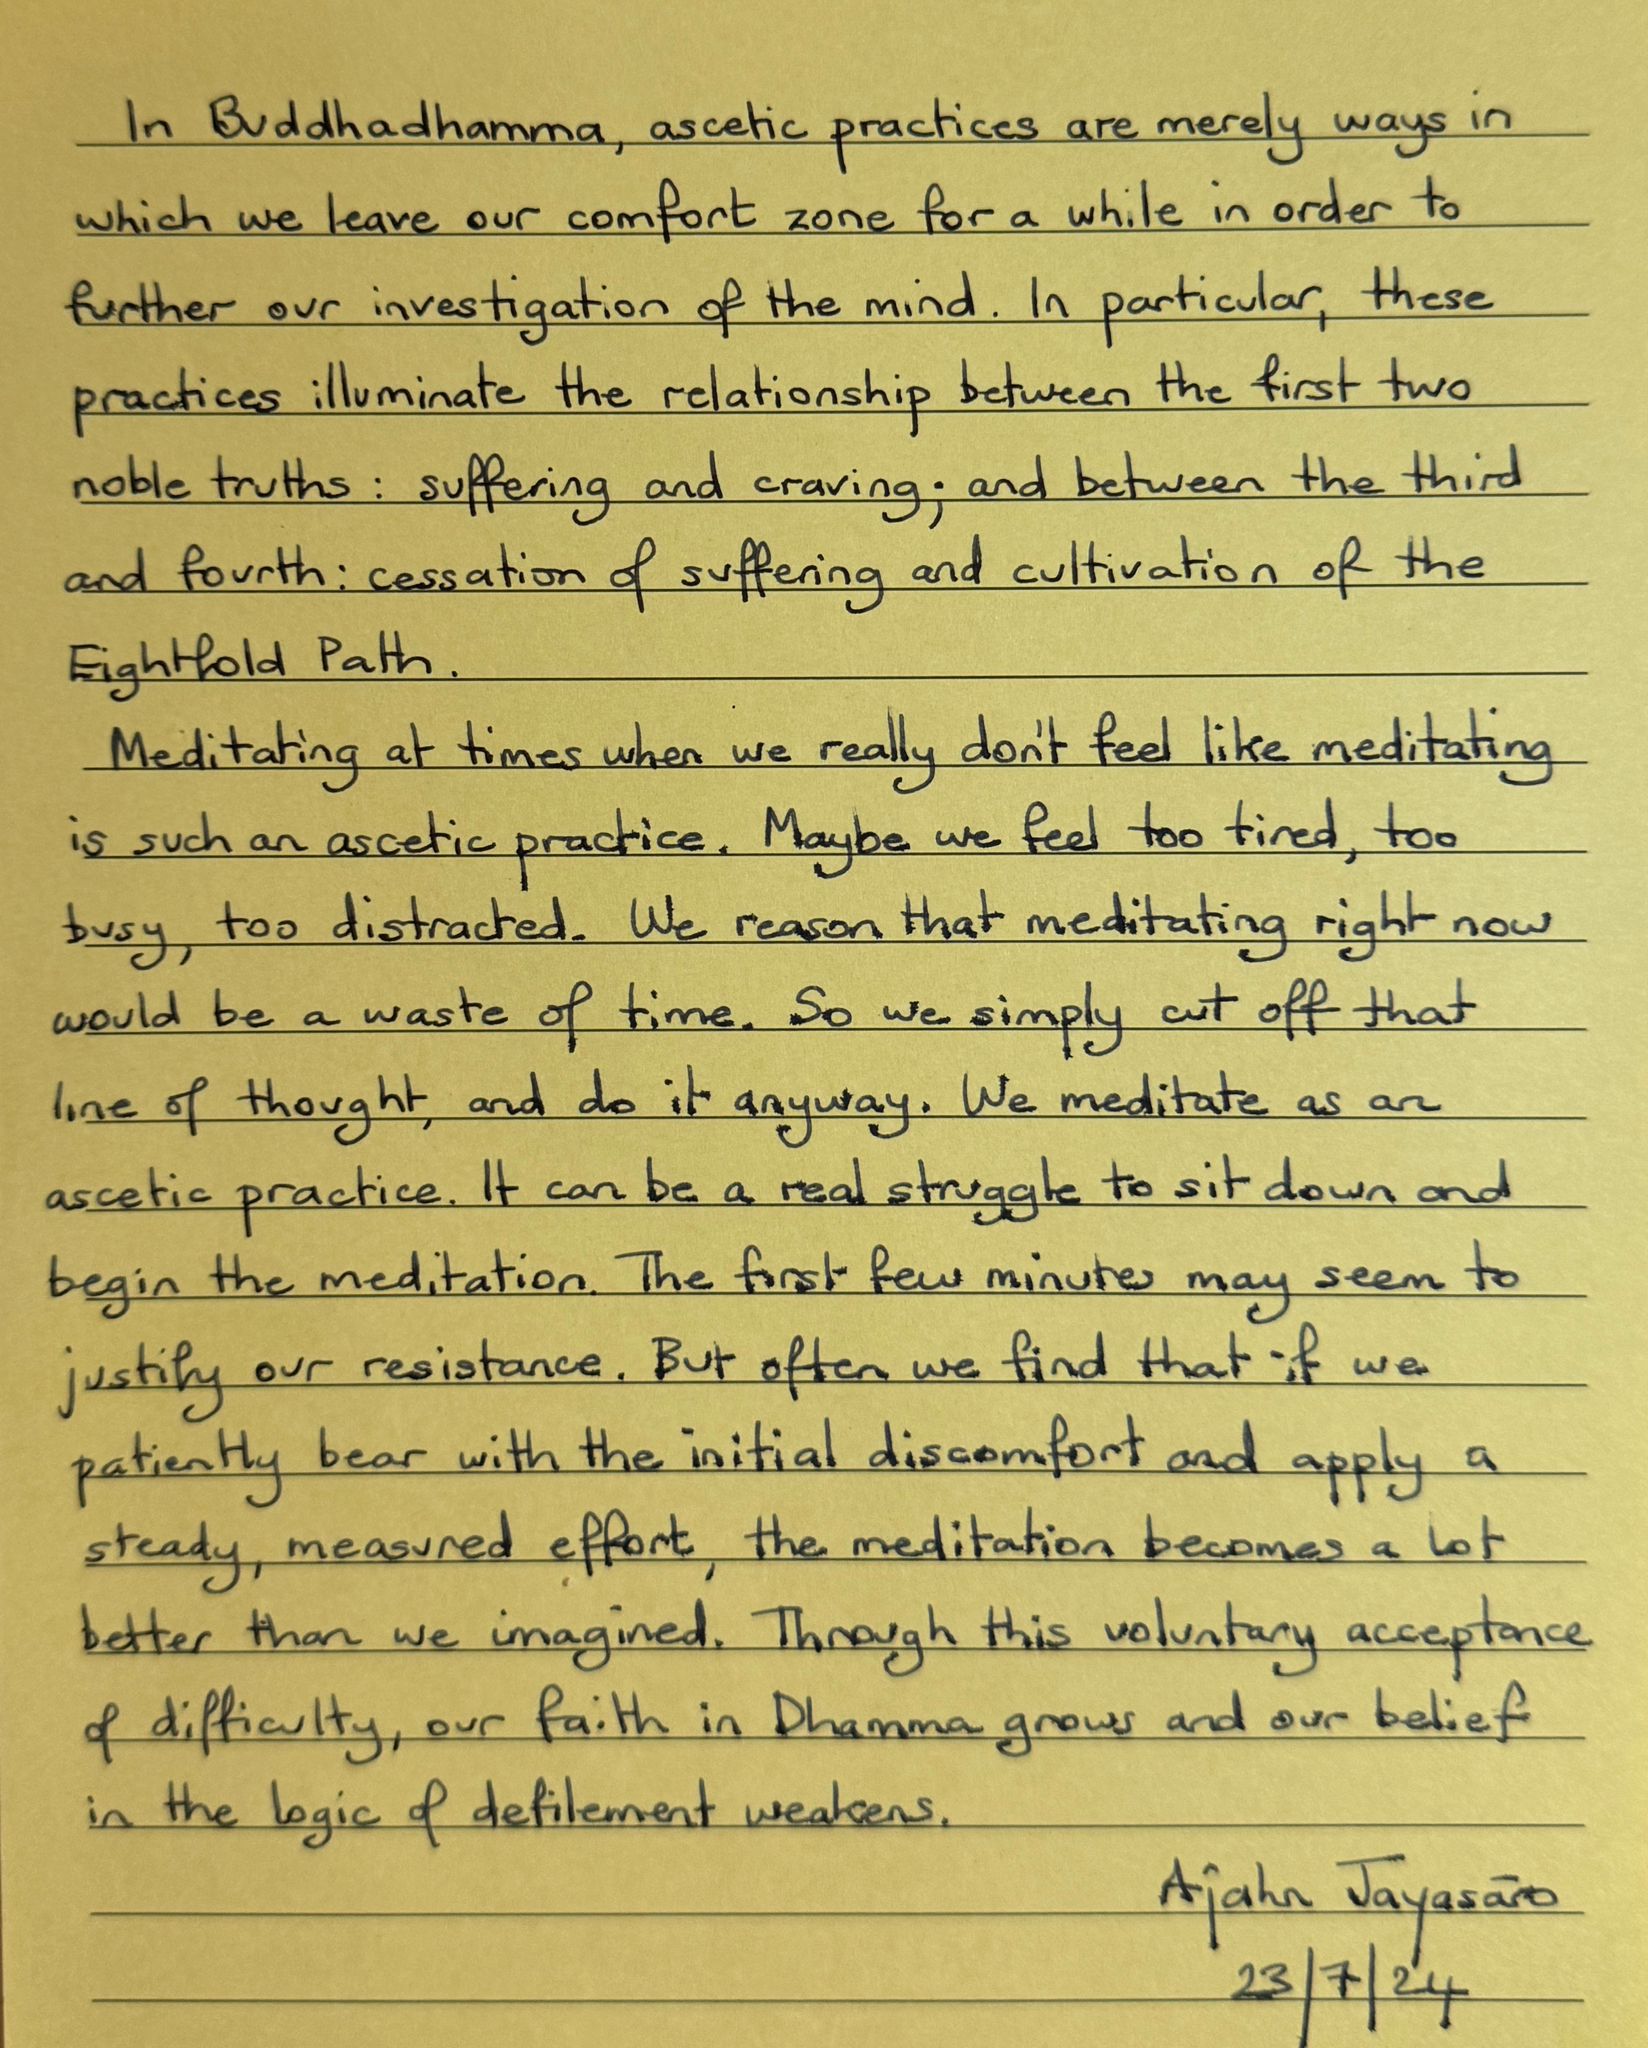 In Buddhadhamma, ascetic practices are merely ways in
which we leave our comfort zone for a while in order to
further our investigation of the mind. In particular, these
practices illuminate the relationship between the first two
noble truths: suffering and craving; and between the third
and fourth: cessation of suffering and cultivation of the
Eightfold Path.
Meditating at times when we really don't feel like meditating
is such an ascetic practice. Maybe we feel too tired, too
busy, too distracted. We reason that meditating right now
would be a waste of time. So we simply cut off that
line of thought, and do it anyway. We meditate as an
ascetic practice. It can be a real struggle to sit down and
begin the meditation. The first few minutes may seem to
justify our resistance. But often we find that if we
patiently bear with the initial discomfort and apply a
steady, measured effort, the meditation becomes a lot
better than we imagined. Through this voluntary acceptance
of difficulty, our faith in Dhamma grows and our belief
in the logic of defilement weakens.
Ajahn Jayasāro
23/7/24